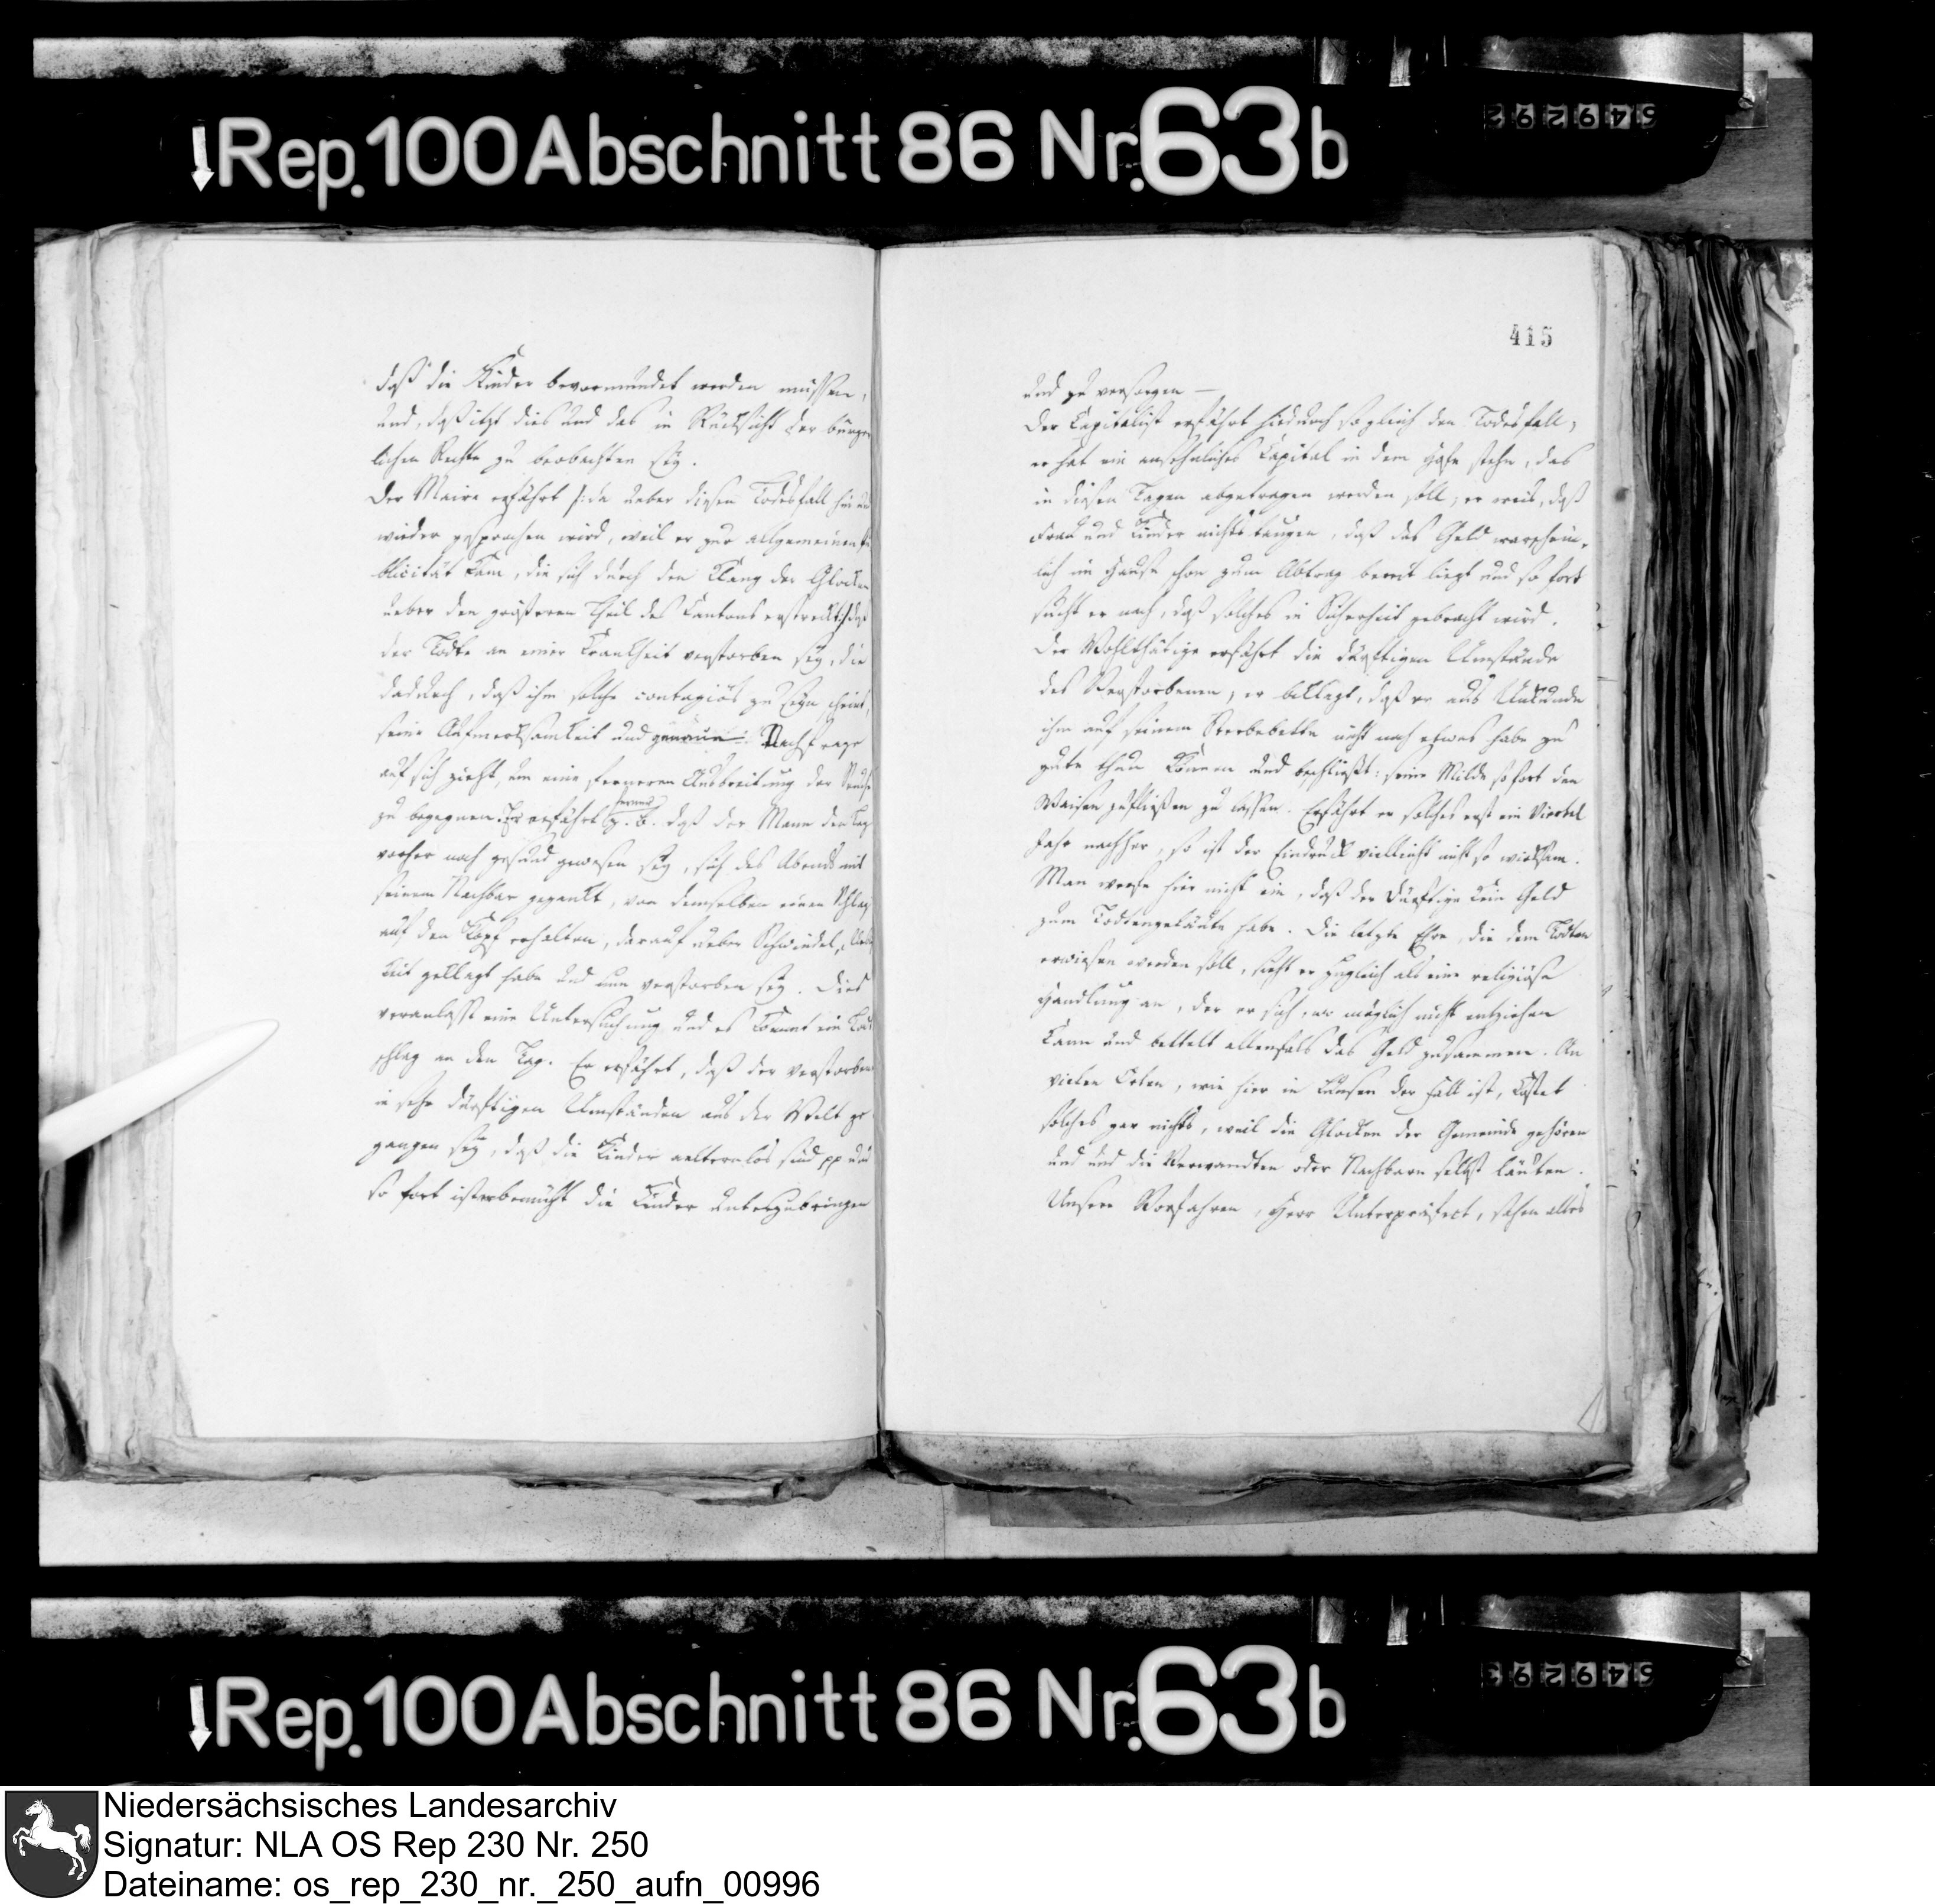 ↓Rep.100Abschnitt 86 Nr.63b
549292
daß die Kinder bevormundet werden müssen,
und, daß itzt dies und das in Rücksicht der bürger
lichen Rechte zu beobachten sey.
Der Maire erfährt /: da ueber diesen Todesfall hin und
wieder gesprochen wird, weil er zur allgemeinen Pu
blicität kam, die sich durch den Klang der Glocken
ueber den größeren Theil des Cantons erstreckt :/ daß
der Todte an einer Krankheit verstorben sey, die
dadurch, daß ihm solche contagiös zu seyn scheint,
seine Aufmerksamkeit und genaue Nachfrage
auf sich zieht, um eine ferneren Ausbreitung der Seuche
zu begegnen. Er erfährt ferner z. B. daß der Mann den Tag
vorher noch gesund gewesen sey, sich des Abends mit
seinem Nachbar gezankt, von demselben einen Schlag
auf den Kopf erhalten, darauf ueber Schwindel, Uebel
keit geklagt habe und nun verstorben sey. Dies
veranlaßt eine Untersuchung und es kommt ein Tod
schlag an den Tag. Er erfährt, daß der verstorbene
in sehr dürftigen Umständen aus der Welt ge
gangen sey, daß die Kinder aelternlos sind pp und
so fort ist er bemüht die Kinder unterzubringen
415
und zu versorgen —
Der Capitalist erfährt hiedurch sogleich den Todesfall;
er hat ein ansehnliches Capital in dem Hofe stehn, das
in diesen Tagen abgetragen werden soll, er weis, daß
Frau und Kinder nichts taugen, daß das Geld warschein,
lich im Hause schon zum Abtrag bereit liegt und so fort
sucht er nach, daß solches in Sicherheit gebracht wird.
Der Wohlthätige erfährt die dürftigen Umstände
des Verstorbenen, er beklagt, daß er aus Unkunde
ihm auf seinem Sterbebette nicht noch etwas habe zu
gute thun können und beschließt: seine Milde so fort den
Waisen zufließen zu lassen. Erfährt er solches erst ein Viertel
Jahr nachher, so ist der Eindruck vielleicht nicht so wirksam.
Man werfe hier nicht ein, daß der Dürftige kein Geld
zum Todtengeläute habe. Die letzte Ehre, die dem Todten
erwiesen werden soll, sieht er zugleich als eine religiöse
Handlung an, der er sich, wo möglich nicht entziehen
kann und bettelt allenfals das Geld zusammen. An
vielen Orten, wie hier in der Fall ist, kostet
solches gar nichts, weil die Glocken der Gemeinde gehören
und und die Verwandten oder Nachbarn selbst läuten.
Unsere Vorfahren, Herr Unterpräfect, sahen alles
↓Rep.100Abschnitt 86 Nr.63b
549293
Niedersächsisches Landesarchiv
Signatur: NLA OS Rep 230 Nr. 250
Dateiname: os_rep_230_nr._250_aufn_00996